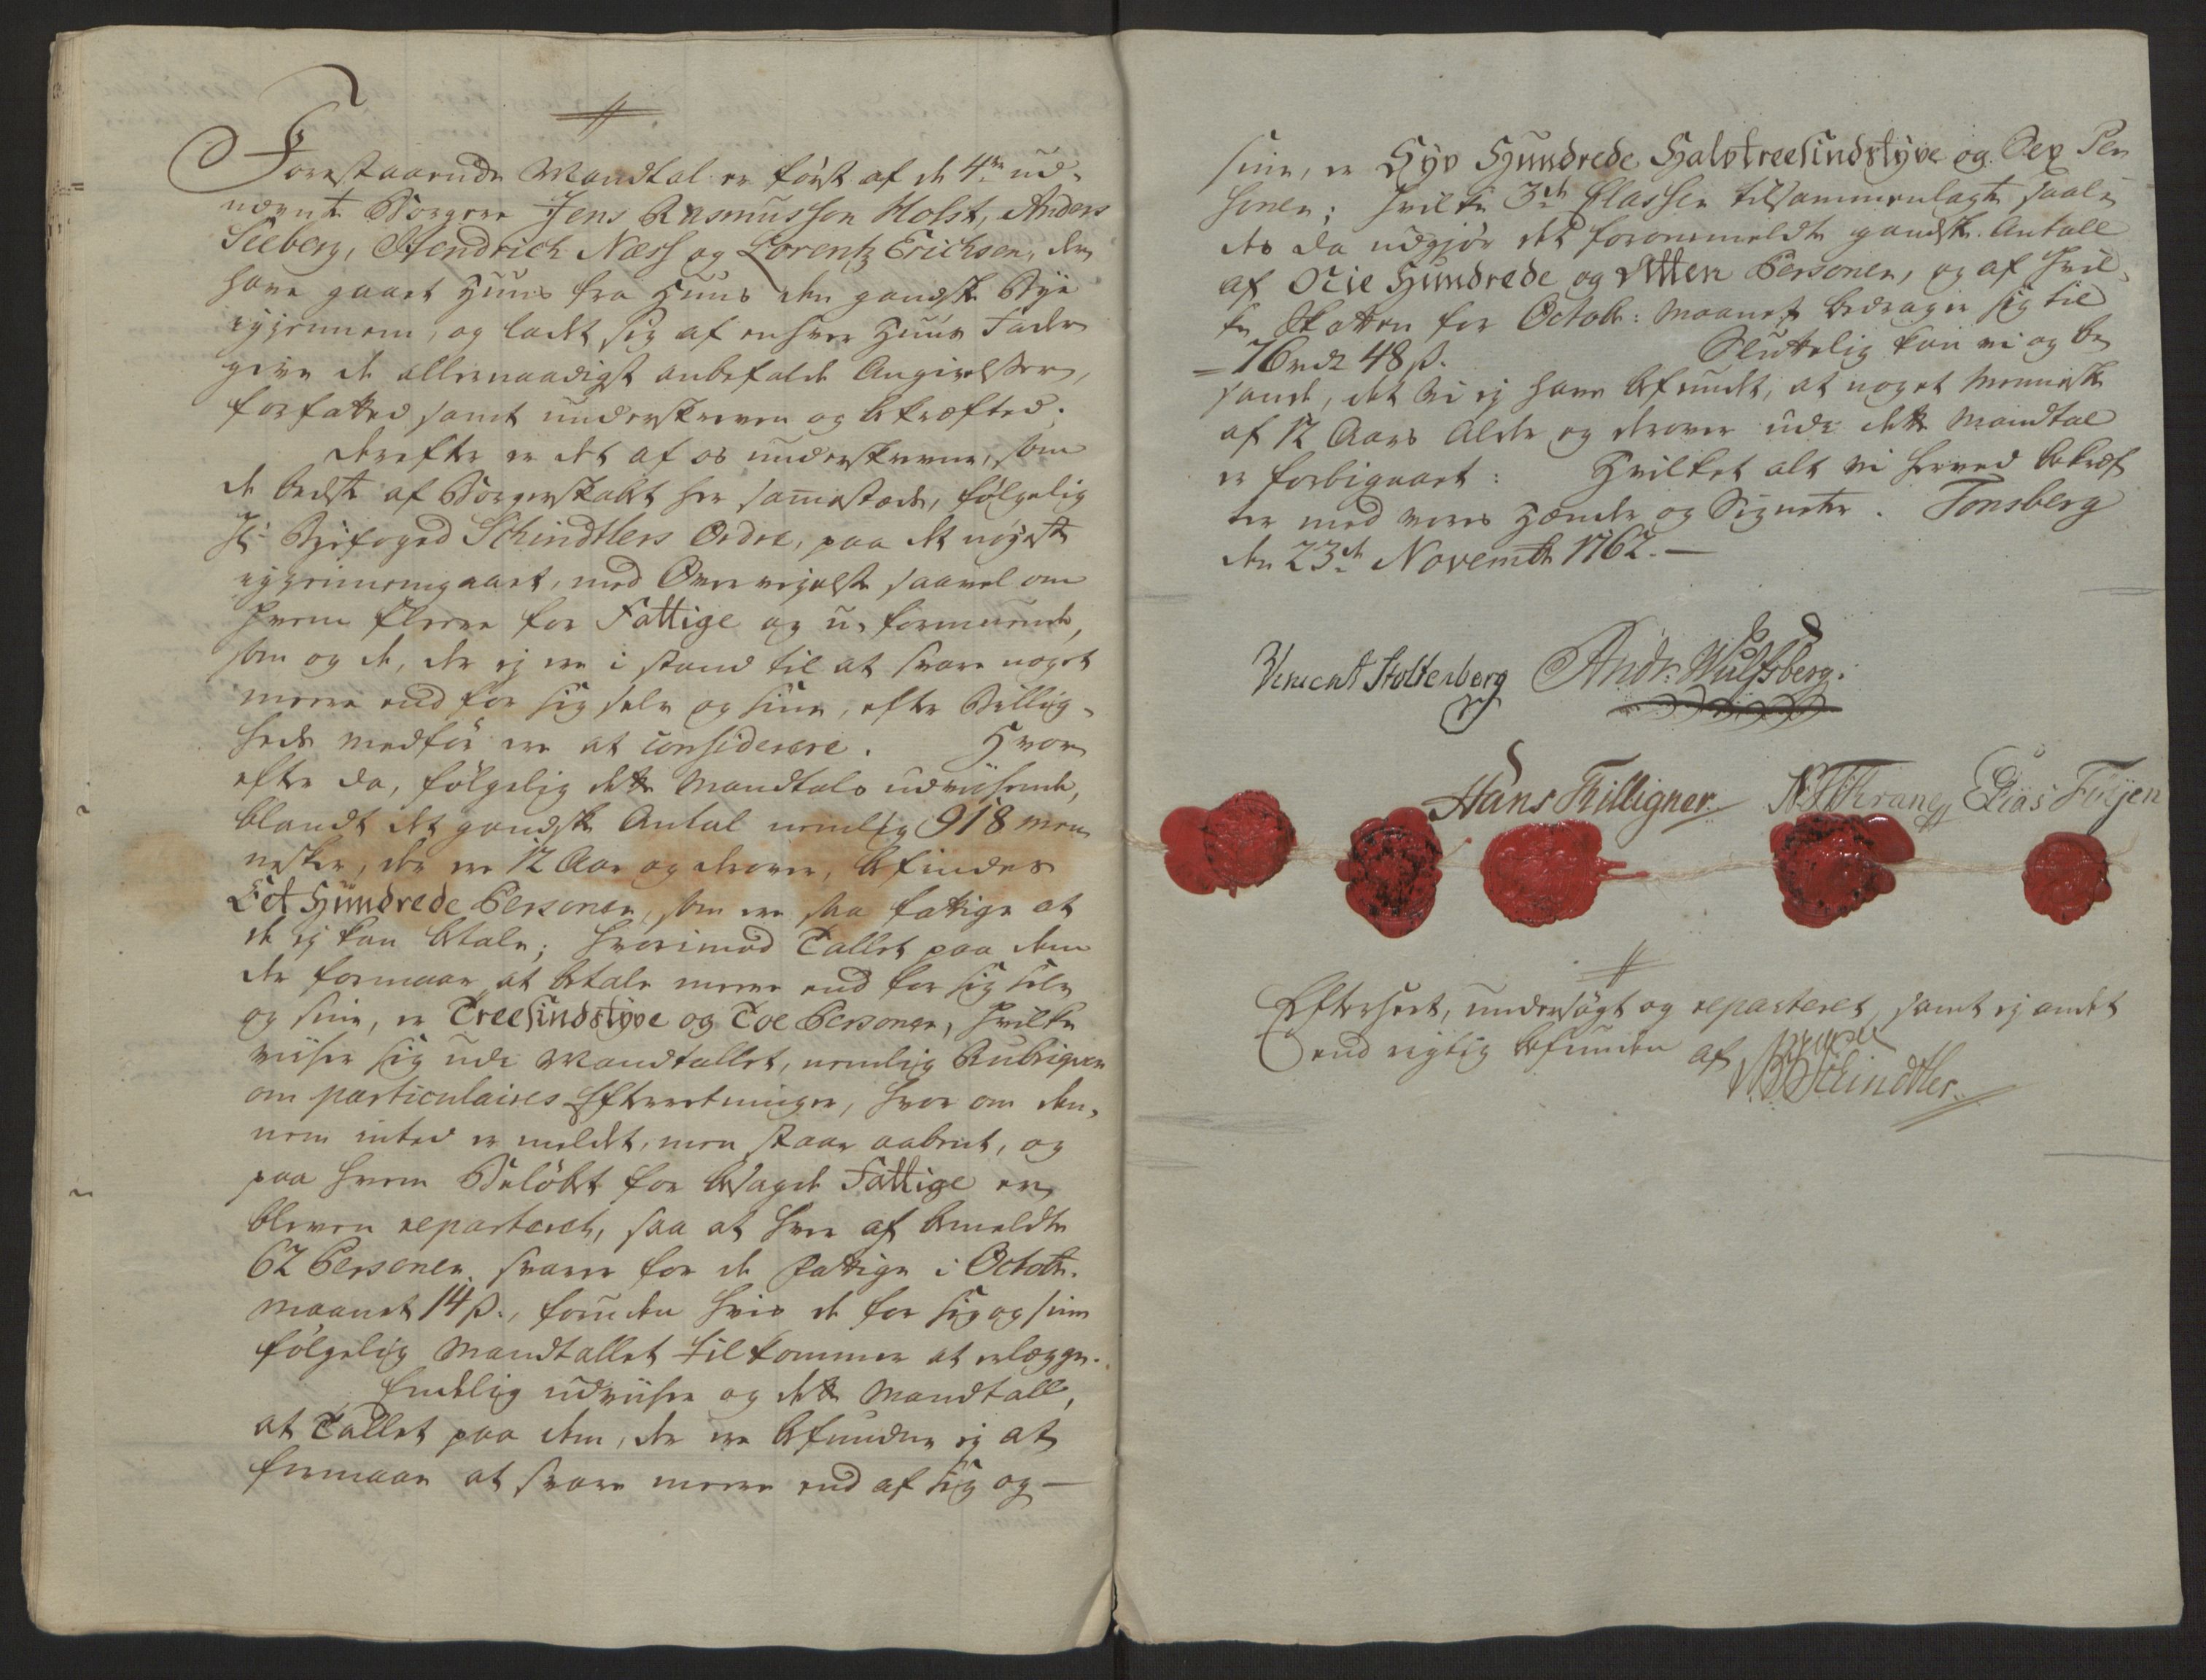 Forestaaende Mandtal er først af de 4re ud-
nævnte Borgere Jens Rasmussen Holst, Anders
Seeberg, Hendrich Næss og Lorentz Erichsen, der
have gaaet Huus fra Huus den gandske Bye
igjennem, og ladet sig af enhver Huus Fader
give de allernaadigst anbefalede Angivelser,
forfatted samt underskreven og bekræfted.
Derefter er det af os underskrevne, som
de bedste af Borgerskabet her sammestæds, følgelig
Hr. Byefoged Schindtlers Ordre, paa det nøyeste
igjennemgaaet, med Overvejelse saavel om
hvem fleere for Fattige og u-formuende,
som og de, der ej ere i stand til at svare noget
meere end for sig selv og sine, efter Billig-
heds medfør ere at considerere. Hvor
efter da, følgelig dette Mandtals udviisende,
blandt det gandske Antal nemlig 918 men
nesker, der ere 12 Aar og derover, befindes
Eet Hundrede Personer, som ere saa fattige at
de ej kan betale; hvorimod Tallet paa dem
der formaar at betale meere end for sig selv
og sine, er Treesindstyve og Toe Personer, hvilke
viiser sig udi Mandtallet, nemlig Rubriquen
om particulaires Efterretninger, hvor om den-
nem intet er meldet, men staar aabent, og
paa hvem Beløbet for besagde Fattige er
bleven reparteret, saa at hver af bemeldte
62 Personer svarer for de fattige i Octobr.
maanet 14 β., foruden hvis de for sig og sine
følgelig Mandtallet tilkommer at erlægge.
Endelig udviiser og dette Mandtall,
at Tallet paa dem, der ere befunden ej at
formaae at svare meere end af sig og —
sine, er Syv Hundrede Halvtreesindstyve og Sex Per
soner; hvilke 3de Classer tilsammenlagte saale
des da udgjør det forommeldte gandske Antall
af Nie Hundrede og Atten Personer, og af hvil-
ke Skatten for Octobr: Maanet bedrager sig til
= 76 rdr 48 β. Sluttelig kan vi og be
sande, det vi ej have befundet, at noget Menniske
af 12 Aars Alder og derover udi dette Mandtal
er forbigaaet: Hvilket alt vi herved bekræf
ter med vores Hænder og Signeter. Tonsberg
den 23de Novembr 1762. —
Vincent Stoltenberg Andr: Wulfsberg.
Hans Thilligner N: T: Krane Elias Füijen
Efterseet, undersøgt og reparteret, samt ej andet
end rigtig befunden af
Schindtler.